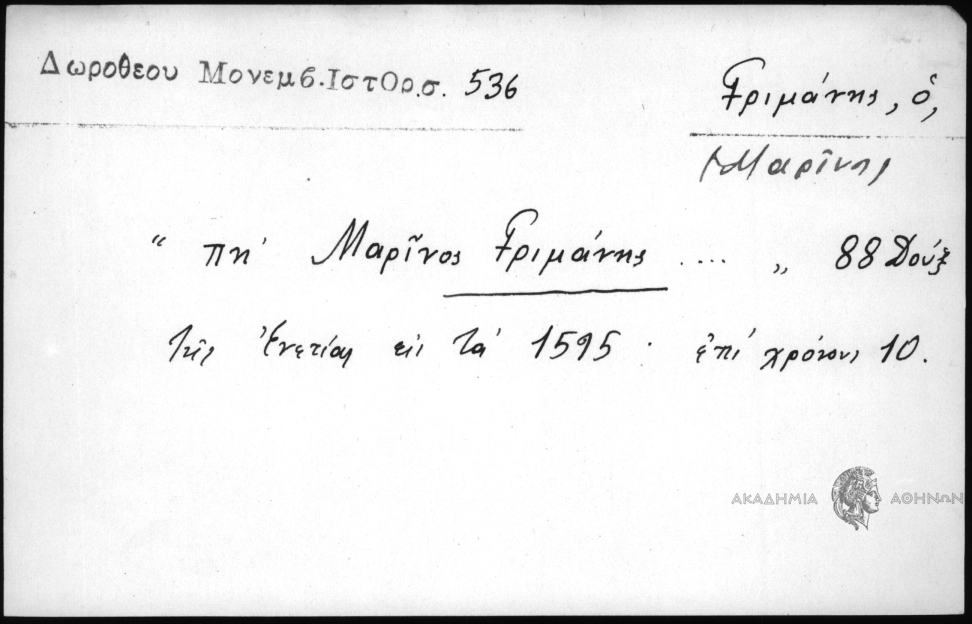 Δωροθεου Μονεμβ.ΙστΟρ.σ. 536
Γριμάνης, ὁ,
Μαρῖνος
“ πη' Μαρῖνος Γριμάνης .... „ 88 Δούξ
τῆς Ἐνετίας εἰς τὰ 1595 · ἐπί χρόνους 10.
ΑΚΑΔΗΜΙΑ ΑΘΗΝΩΝ